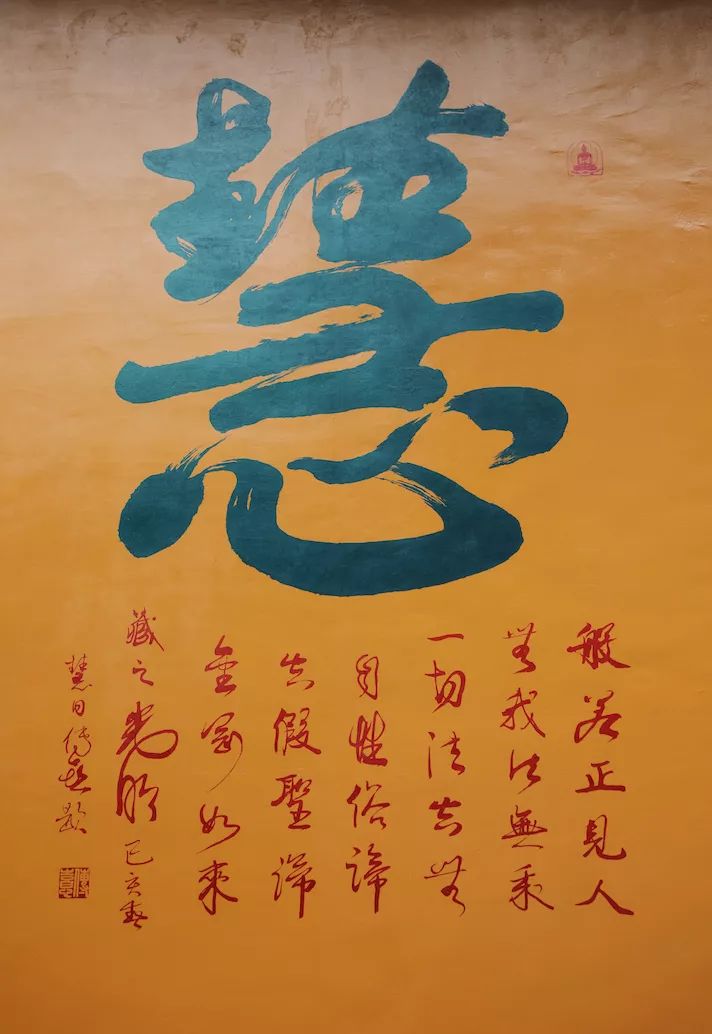 慧
般若正見人
無我法無乘
一切法皆無
自性俗諦
皆假聖諦
金剛如來
藏之光明 己亥春
慧日傳喜題
傳喜